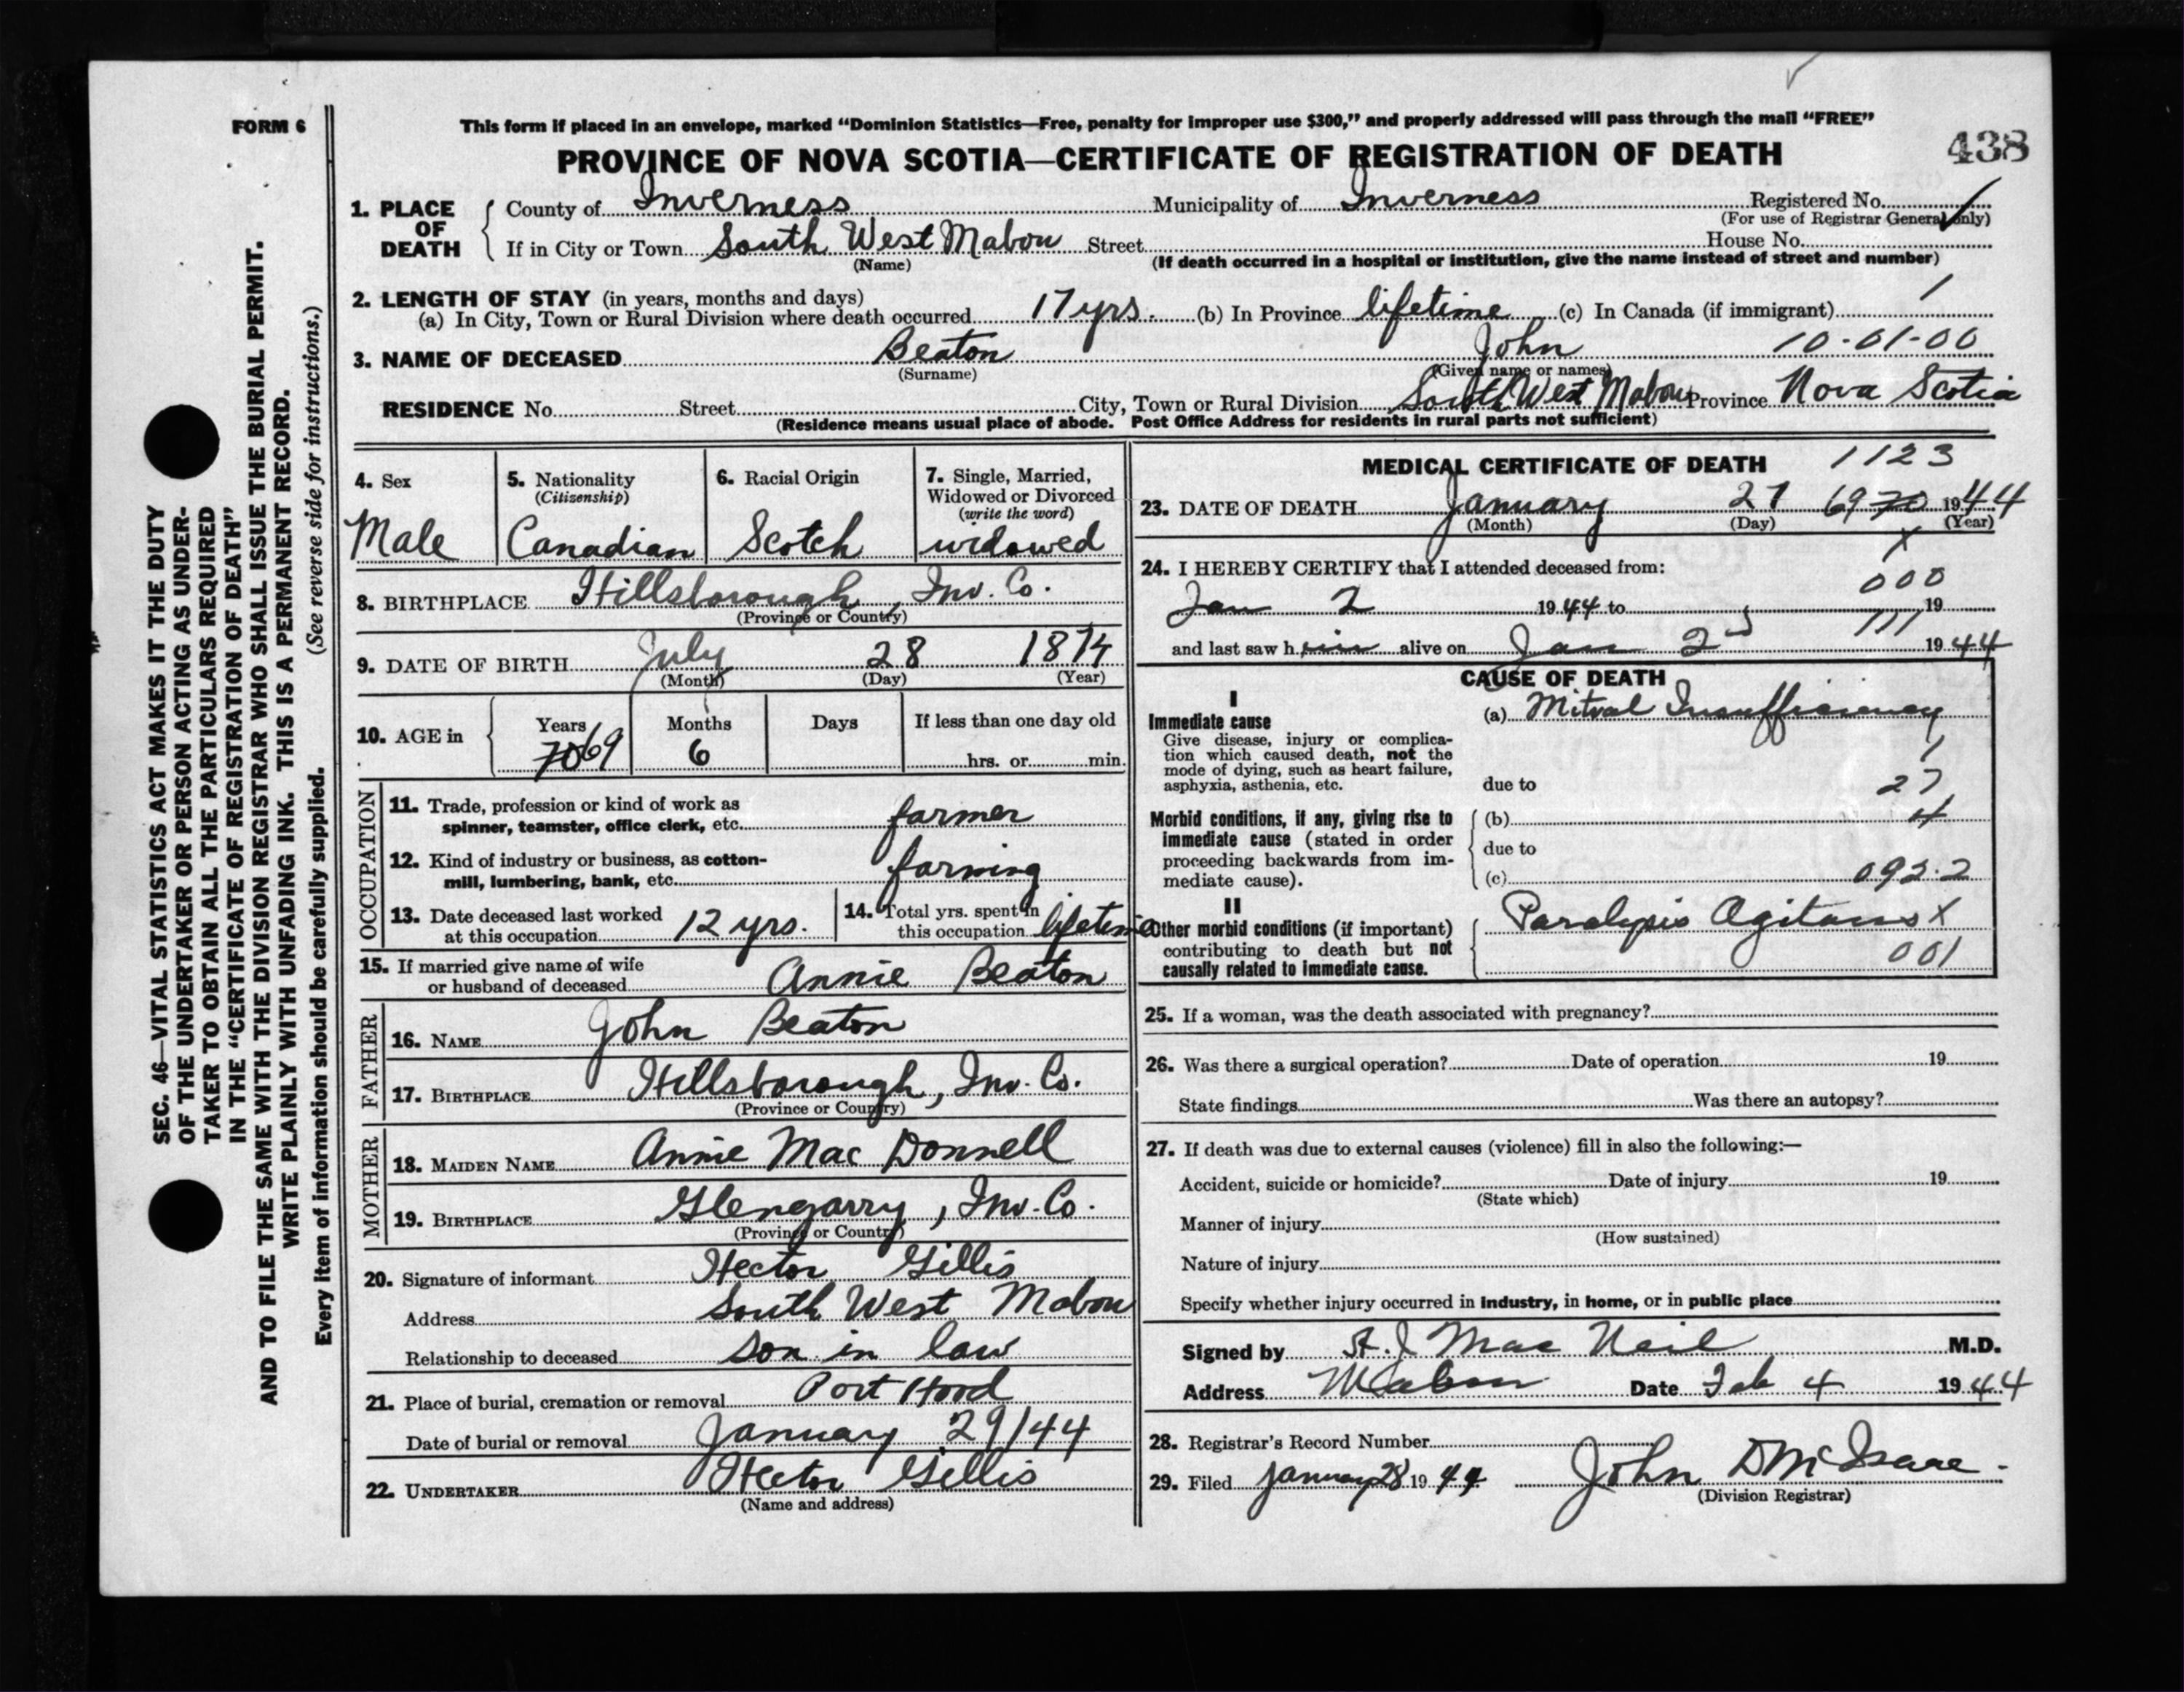 FORM 6
This form if placed in an envelope, marked “Dominion Statistics—Free, penalty for improper use $300,” and properly addressed will pass through the mail “FREE”
PROVINCE OF NOVA SCOTIA—CERTIFICATE OF REGISTRATION OF DEATH
438
1. PLACE OF DEATH
County of Inverness Municipality of Inverness Registered No.
(For use of Registrar General only)
If in City or Town South West Mabou Street House No.
(Name) (If death occurred in a hospital or institution, give the name instead of street and number)
2. LENGTH OF STAY (in years, months and days)
(a) In City, Town or Rural Division where death occurred 17 yrs. (b) In Province lifetime (c) In Canada (if immigrant) /
3. NAME OF DECEASED Beaton John 10-01-00
(Surname) (Given name or names)
RESIDENCE No. Street City, Town or Rural Division South West Mabou Province Nova Scotia
(Residence means usual place of abode. Post Office Address for residents in rural parts not sufficient)
4. Sex
Male
5. Nationality
(Citizenship)
Canadian
6. Racial Origin
Scotch
7. Single, Married,
Widowed or Divorced
(write the word)
widowed
8. BIRTHPLACE Hillsborough, Inv. Co.
(Province or Country)
9. DATE OF BIRTH July 28 1874
(Month) (Day) (Year)
10. AGE in
Years Months Days If less than one day old
70 69 6 hrs. or min.
OCCUPATION
11. Trade, profession or kind of work as
spinner, teamster, office clerk, etc. farmer
12. Kind of industry or business, as cotton-
mill, lumbering, bank, etc. farming
13. Date deceased last worked
at this occupation 12 yrs.
14. Total yrs. spent in
this occupation lifetime
15. If married give name of wife
or husband of deceased Annie Beaton
FATHER
16. NAME John Beaton
17. BIRTHPLACE Hillsborough, Inv. Co.
(Province or Country)
MOTHER
18. MAIDEN NAME Annie Mac Donnell
19. BIRTHPLACE Glengarry, Inv. Co.
(Province or Country)
20. Signature of informant Hector Gillis
Address South West Mabou
Relationship to deceased son in law
21. Place of burial, cremation or removal Port Hood
Date of burial or removal January 29/44
22. UNDERTAKER Hector Gillis
(Name and address)
MEDICAL CERTIFICATE OF DEATH 1123
23. DATE OF DEATH January 27 69 70 1944
(Month) (Day) (Year)
X
24. I HEREBY CERTIFY that I attended deceased from:
000
Jan 2 1944 to 19
111
and last saw h im alive on Jan 2 1944
CAUSE OF DEATH
I
Immediate cause
Give disease, injury or complica-
tion which caused death, not the
mode of dying, such as heart failure,
asphyxia, asthenia, etc.
(a) Mitral Insufficiency
1
due to 27
Morbid conditions, if any, giving rise to
immediate cause (stated in order
proceeding backwards from im-
mediate cause).
(b) 4
due to
(c) 092.2
II
Other morbid conditions (if important)
contributing to death but not
causally related to immediate cause.
Paralysis Agitans X
001
25. If a woman, was the death associated with pregnancy?
26. Was there a surgical operation? Date of operation 19
State findings Was there an autopsy?
27. If death was due to external causes (violence) fill in also the following:—
Accident, suicide or homicide? Date of injury 19
(State which)
Manner of injury
(How sustained)
Nature of injury
Specify whether injury occurred in industry, in home, or in public place
Signed by A. J Mac Neil M.D.
Address Mabou Date Feb 4 1944
28. Registrar's Record Number
29. Filed January 28 1944 John D McIsaac
(Division Registrar)
SEC. 46—VITAL STATISTICS ACT MAKES IT THE DUTY
OF THE UNDERTAKER OR PERSON ACTING AS UNDER-
TAKER TO OBTAIN ALL THE PARTICULARS REQUIRED
IN THE “CERTIFICATE OF REGISTRATION OF DEATH”
AND TO FILE THE SAME WITH THE DIVISION REGISTRAR WHO SHALL ISSUE THE BURIAL PERMIT.
WRITE PLAINLY WITH UNFADING INK. THIS IS A PERMANENT RECORD.
Every item of information should be carefully supplied. (See reverse side for instructions.)